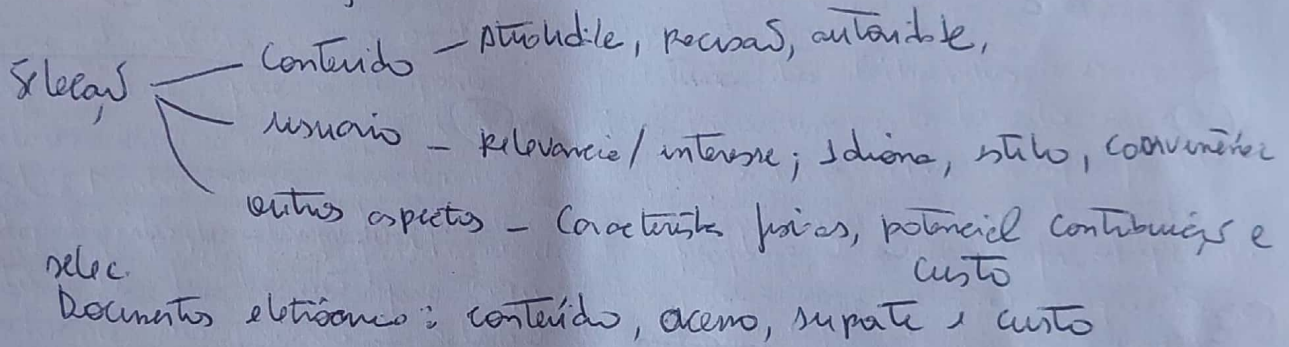 Conteúdo – atualidade, precisão, autoridade,
Seleção
usuário – Relevancia/interesse; Idioma, estilo, conveniência
outros aspectos – Característica físicas, potencial contribuição e custo
selec.
Documentos eletrônico: conteúdo, acesso, suporte e custo